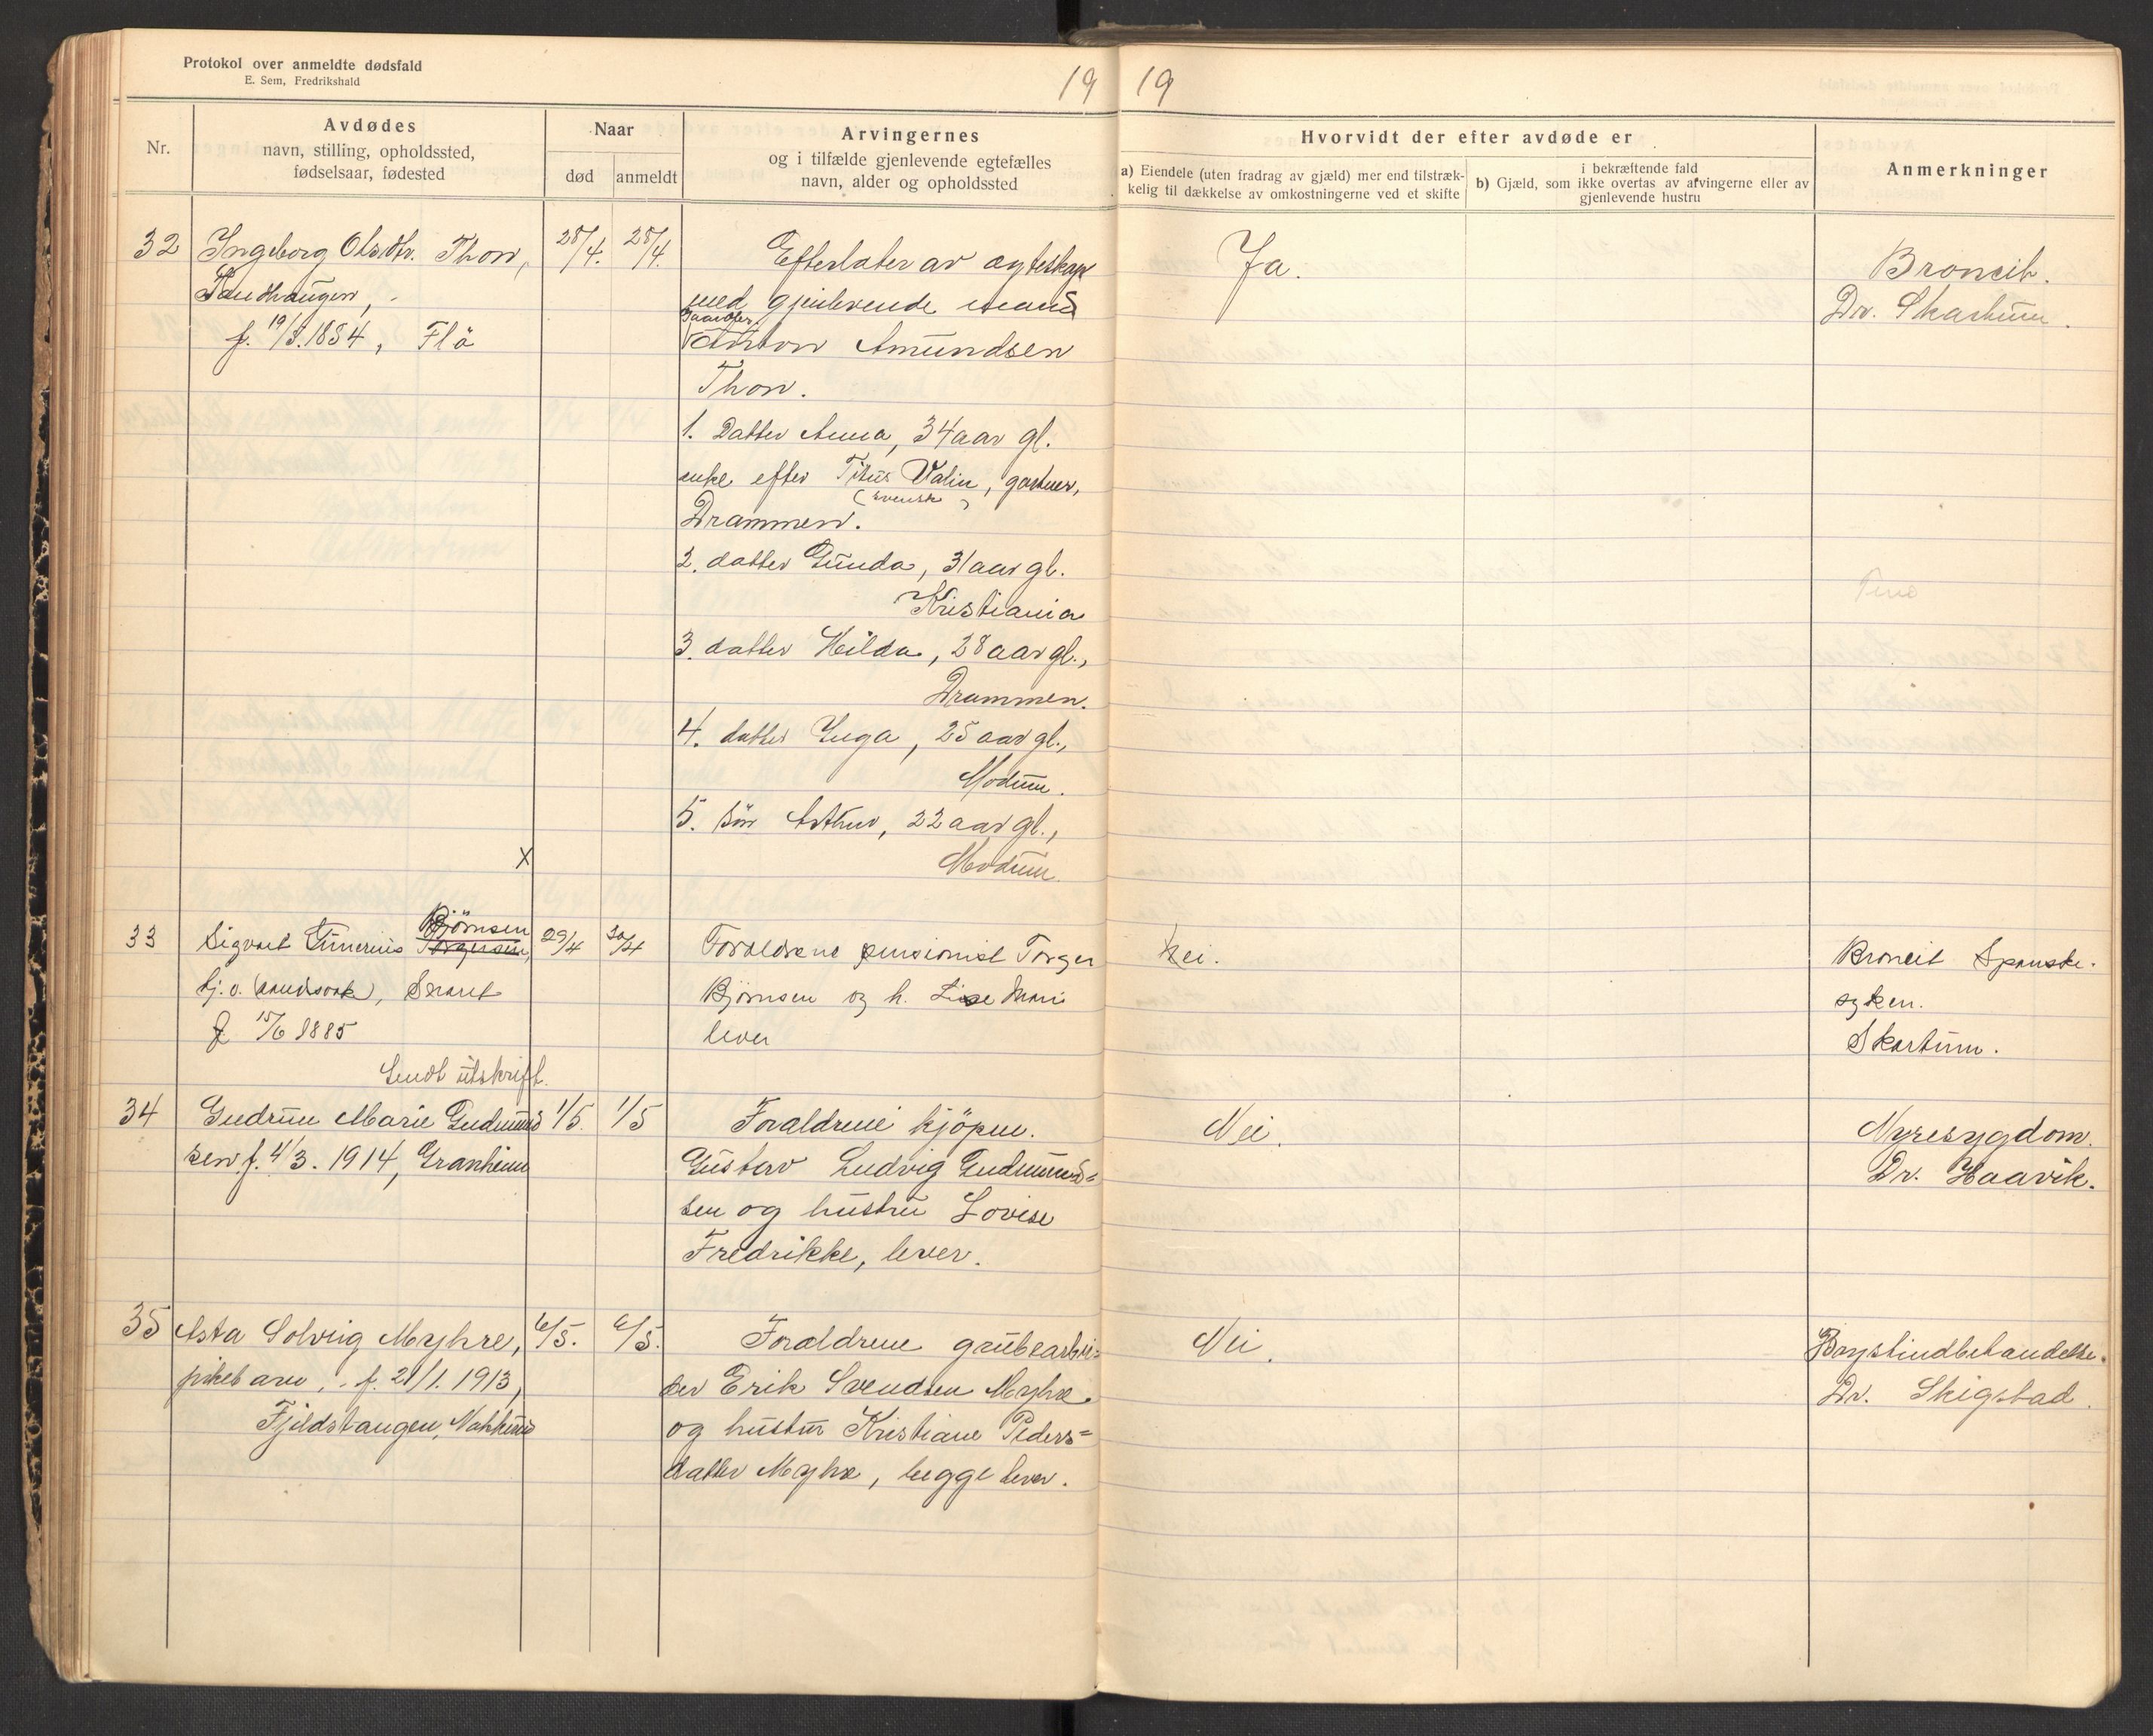 Protokol over anmeldte dødsfald
E. Sem, Fredrikshald
19
19
Nr.
Avdødes
navn, stilling, opholdssted,
fødselsaar, fødested
Naar
død
anmeldt
Arvingernes
og i tilfælde gjenlevende egtefælles
navn, alder og opholdssted
Hvorvidt der efter avdøde er
a) Eiendele (uten fradrag av gjæld) mer end tilstræk-
kelig til dækkelse av omkostningerne ved et skifte
i bekræftende fald
b) Gjæld, som ikke overtas av arvingerne eller av
gjenlevende hustru
Anmerkninger
32
Ingeborg Olsdtr. Thon,
Sandhaugen,
f. 19/5. 1854, Flå
28/4.
28/4.
Efterlater av ægteskap
med gjenlevende mand
Anton Amundsen
Thon.
1. Datter Anna, 34 aar gl.
enke efter Titus Valin, gartner,
(svensk)
Drammen.
2. datter Gunda, 31 aar gl.
Kristiania
3. datter Hilda, 28 aar gl.,
Drammen.
4. datter Inga, 25 aar gl.,
Modum.
5. sön Arthur, 22 aar gl.,
Modum.
Ja.
Broncit.
Dr. Skartum.
x
33
Björnsen
Sigvart Torgersen,
f. 15/6 1885
Sendt utskrift.
29/4
30/4
Forældrene pensionist Torger
Björnsen og h. Lise Mari
lever
Nei.
Broncit Spanske-
syken.
Skartum.
34
Gudrun Marie Gudmund
sen f. 4/3. 1914, Granheim
1/5.
1/5
Forældrene kjöpm.
Gustav Ludvig Gudmund=
sen og hustru Lovise
Fredrikke, lever.
Nei.
Nyresygdom.
Dr. Haavik.
35
Asta Solveig Myhre,
pikebarn, f. 21/1. 1913,
Fjeldstangen, Nakkerud
6/5.
6/5.
Forældrene grubearbei=
der Erik Svendsen Myhre
og hustru Kristiane Peders=
datter Myhre, begge lever.
Nei.
Dr. Skigstad.